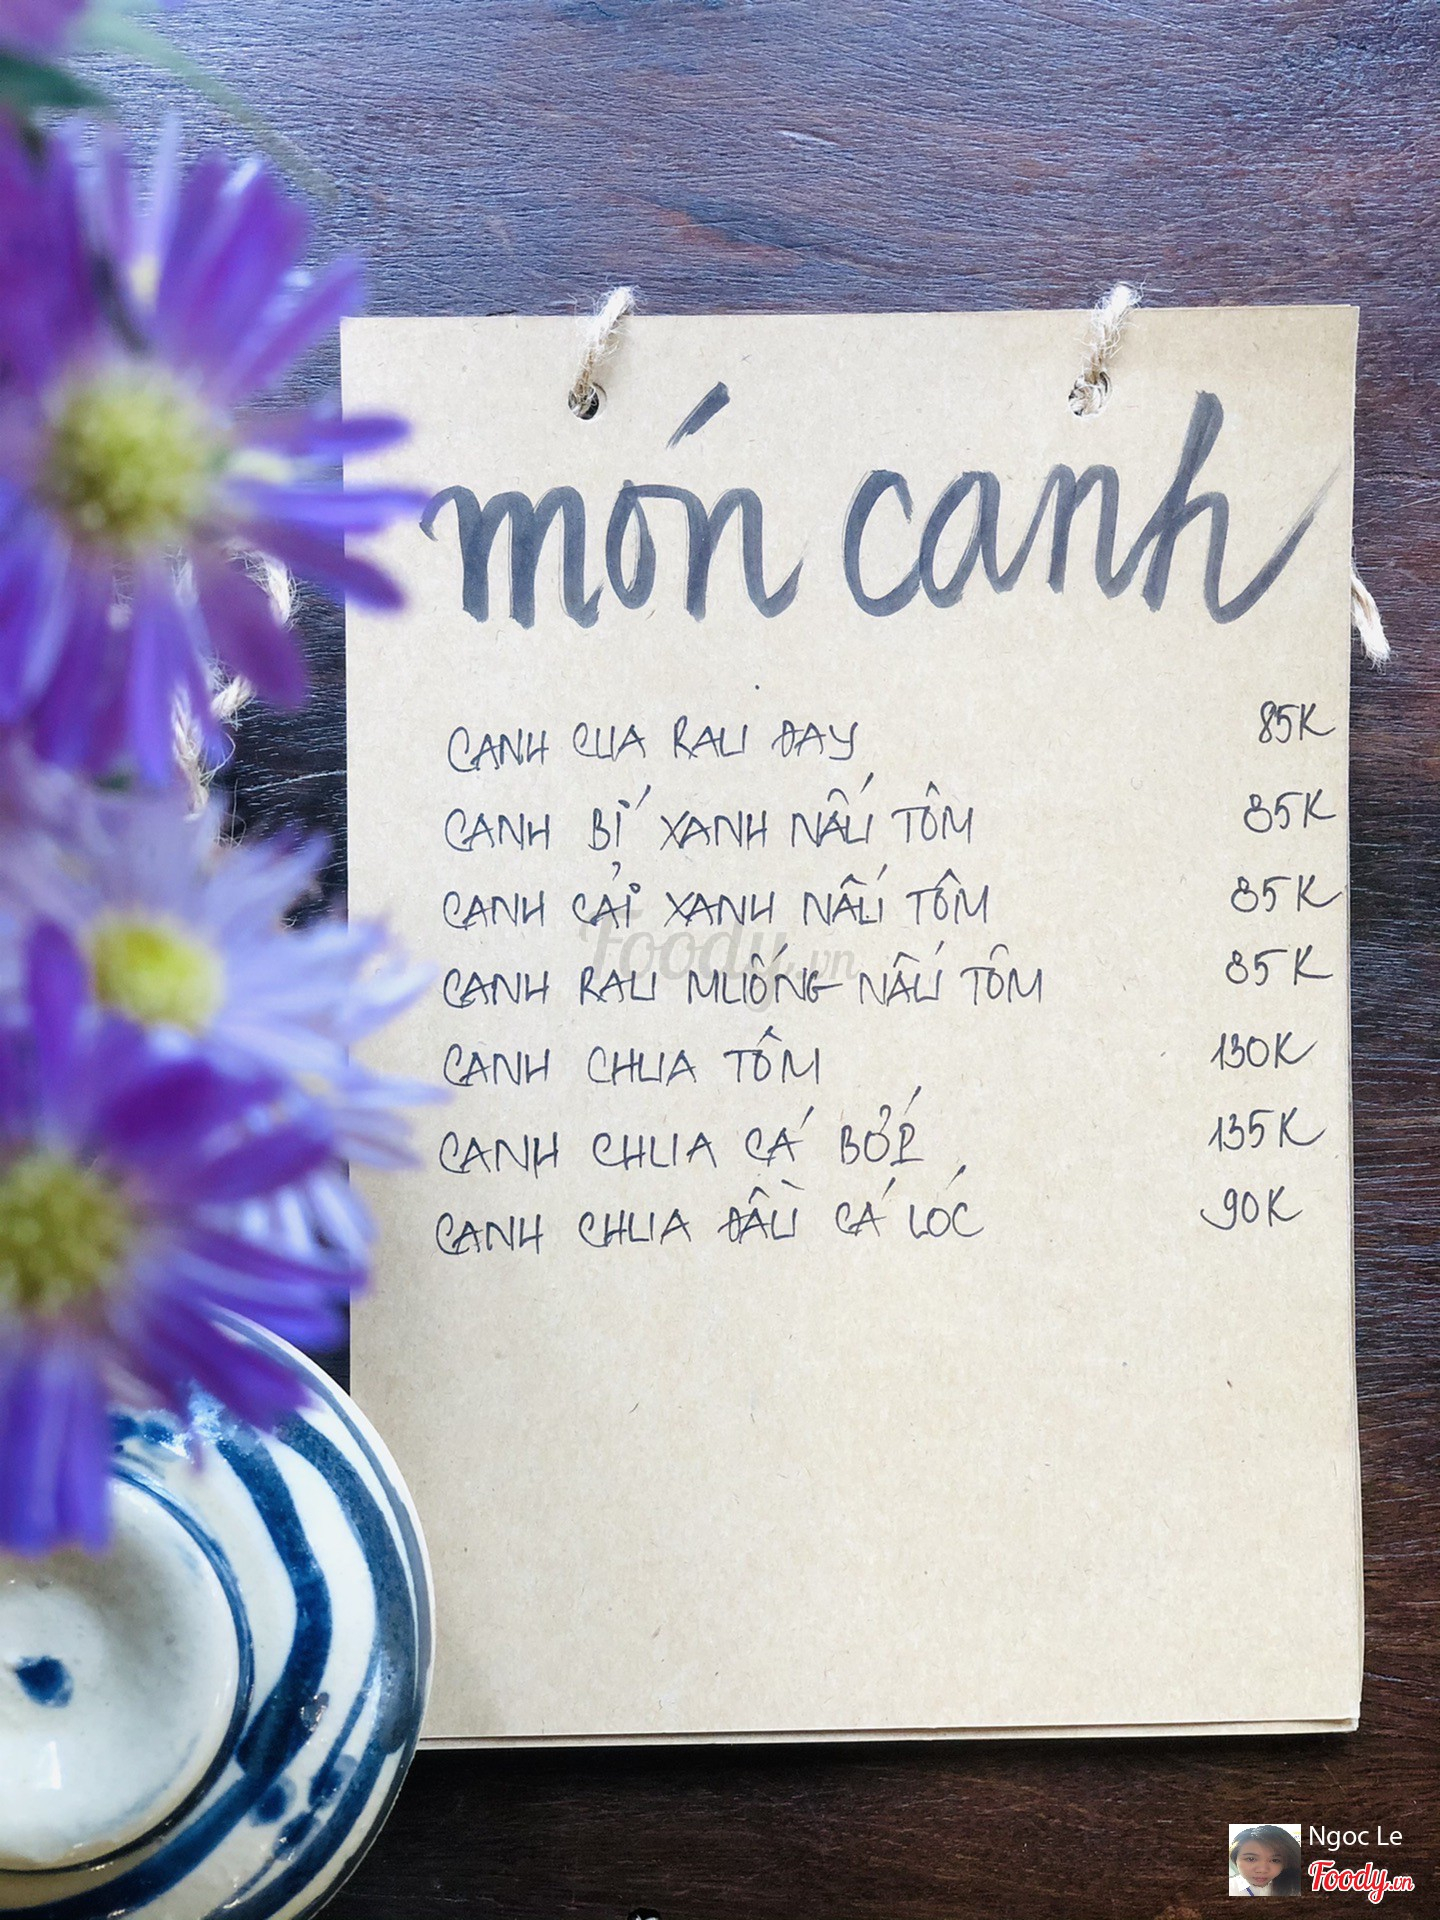 món canh
CANH CUA RAU ĐAY 85K
CANH BÍ XANH NẤU TÔM 85K
CANH CẢI XANH NẤU TÔM 85K
CANH RAU MUỐNG NẤU TÔM 85K
CANH CHUA TÔM 130K
CANH CHUA CÁ BỚP 135K
CANH CHUA ĐẦU CÁ LÓC 90K
Foody.vn
Ngoc Le
Foody.vn